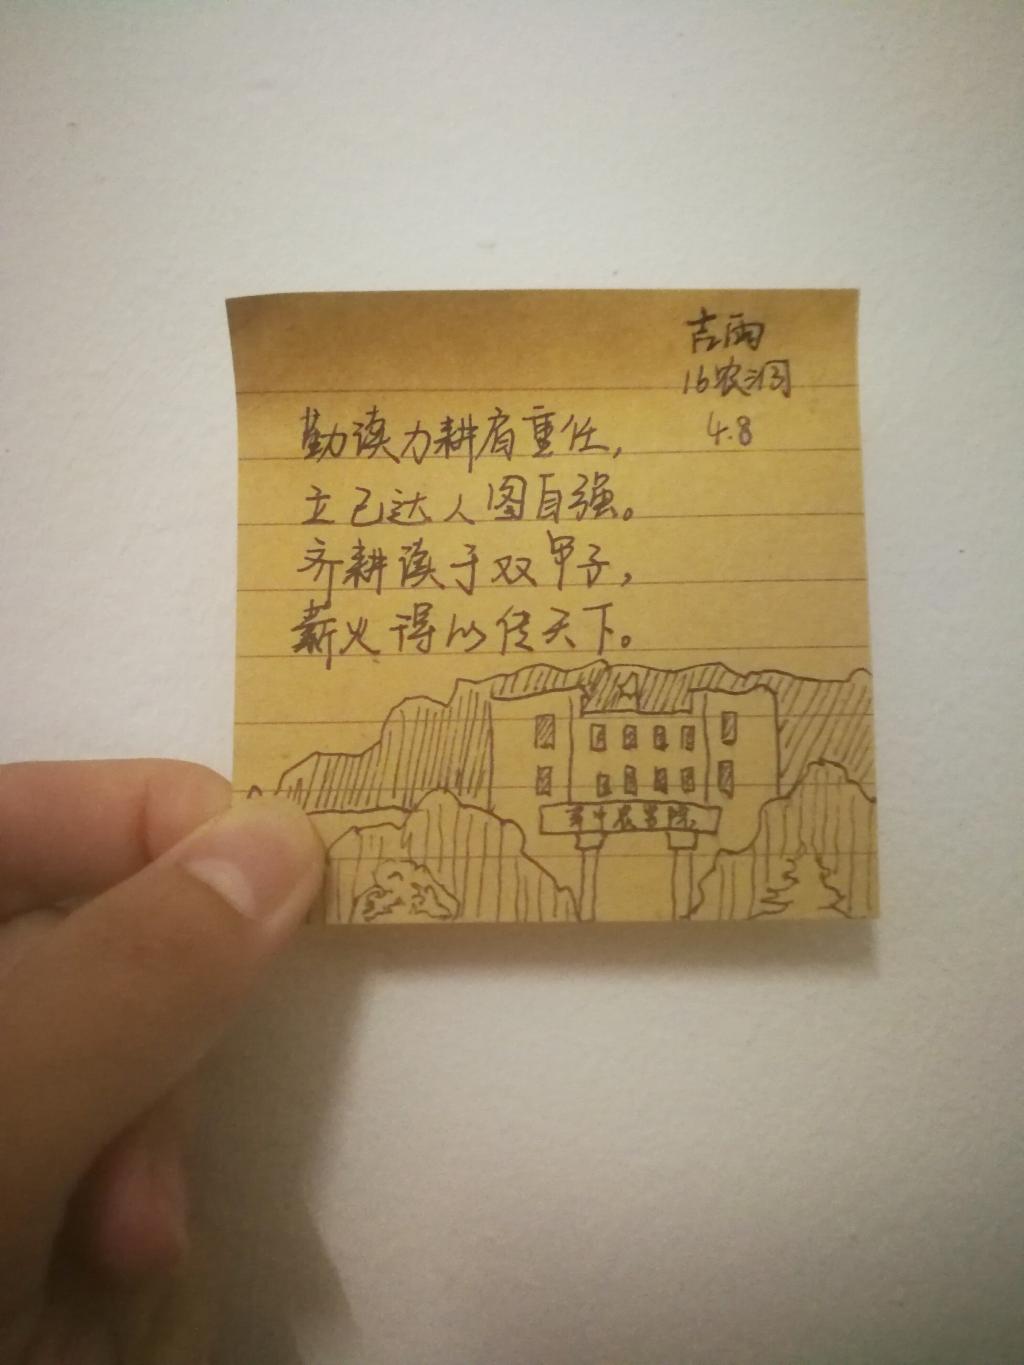 吉雨
16农润
4.8
勤读力耕肩重任，
立己达人图自强。
齐耕读于双甲子，
薪火得以传天下。
华中农学院